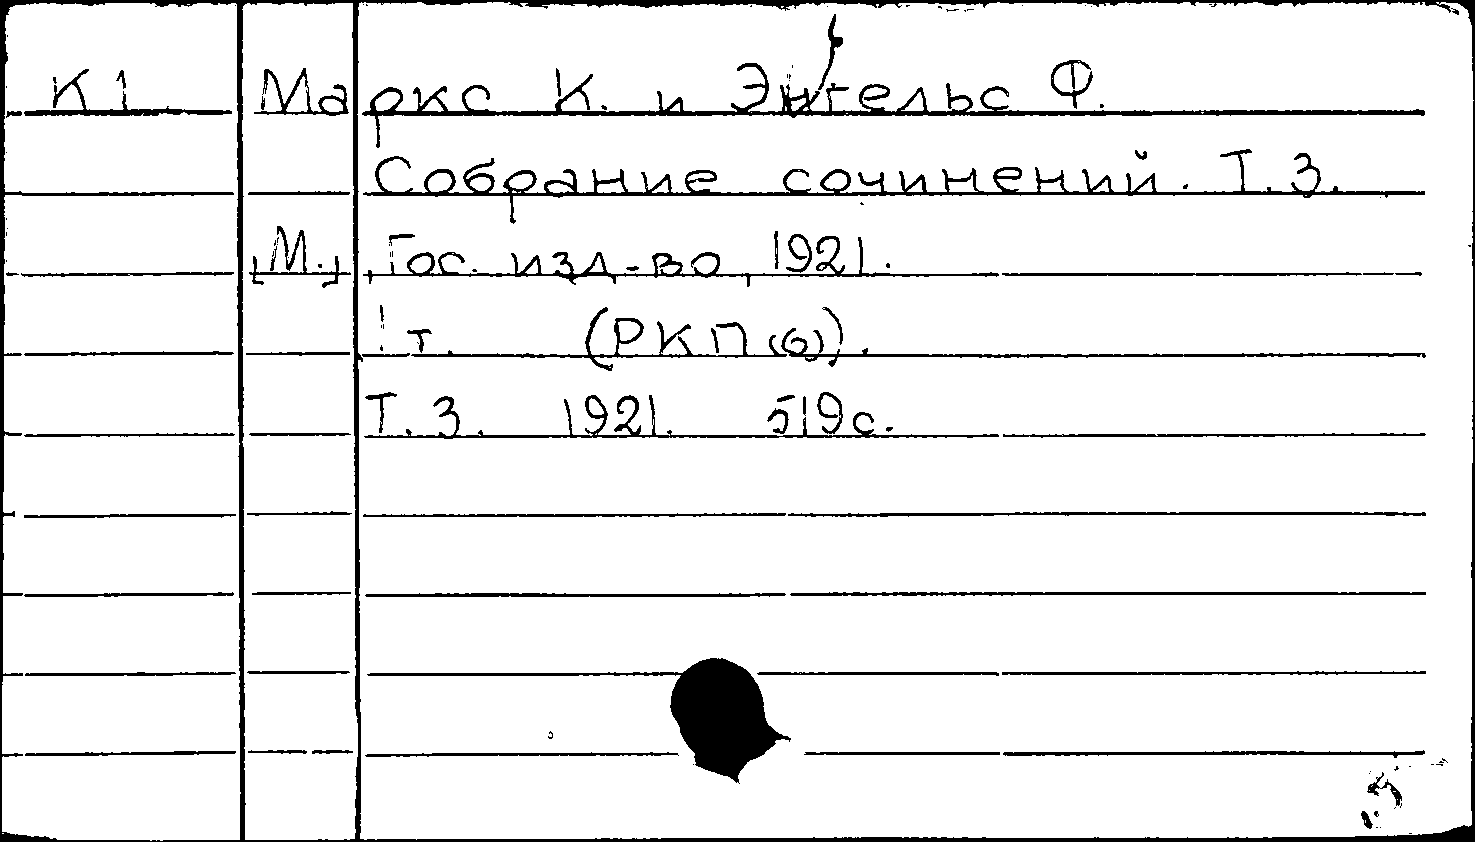 К1 Маркс К. и Энгельс Ф.
Собрание сочинений. Т. 3.
[М.], Гос. изд-во, 1921.
1 т. (РКП(б)).
Т. 3. 1921. 519с.